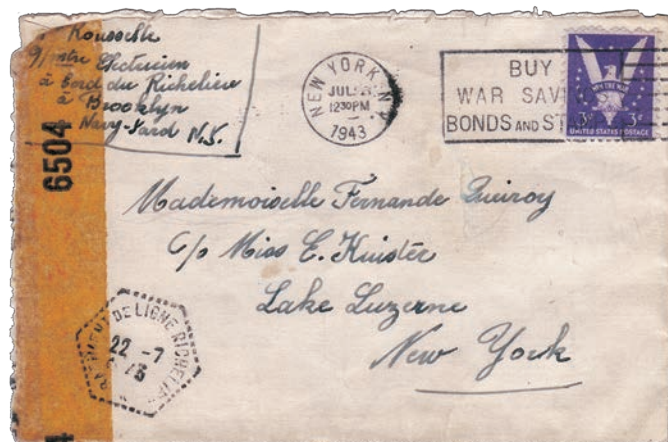 Rousselle
Electricien
à bord du Richelieu
à Brooklyn
Navy-Yard N.Y.
6504
NEW YORK, N.Y.
JUL
1230PM
1943
BUY
WAR SAVI
BONDS AND ST
WIN THE WAR
3¢ 3¢
UNITED STATES POSTAGE
Mademoiselle Fernande Queiroy
c/o Miss E. Kuister
Lake Luzerne
New York
BATIMENT DE LIGNE RICHELIEU
22 -7
4